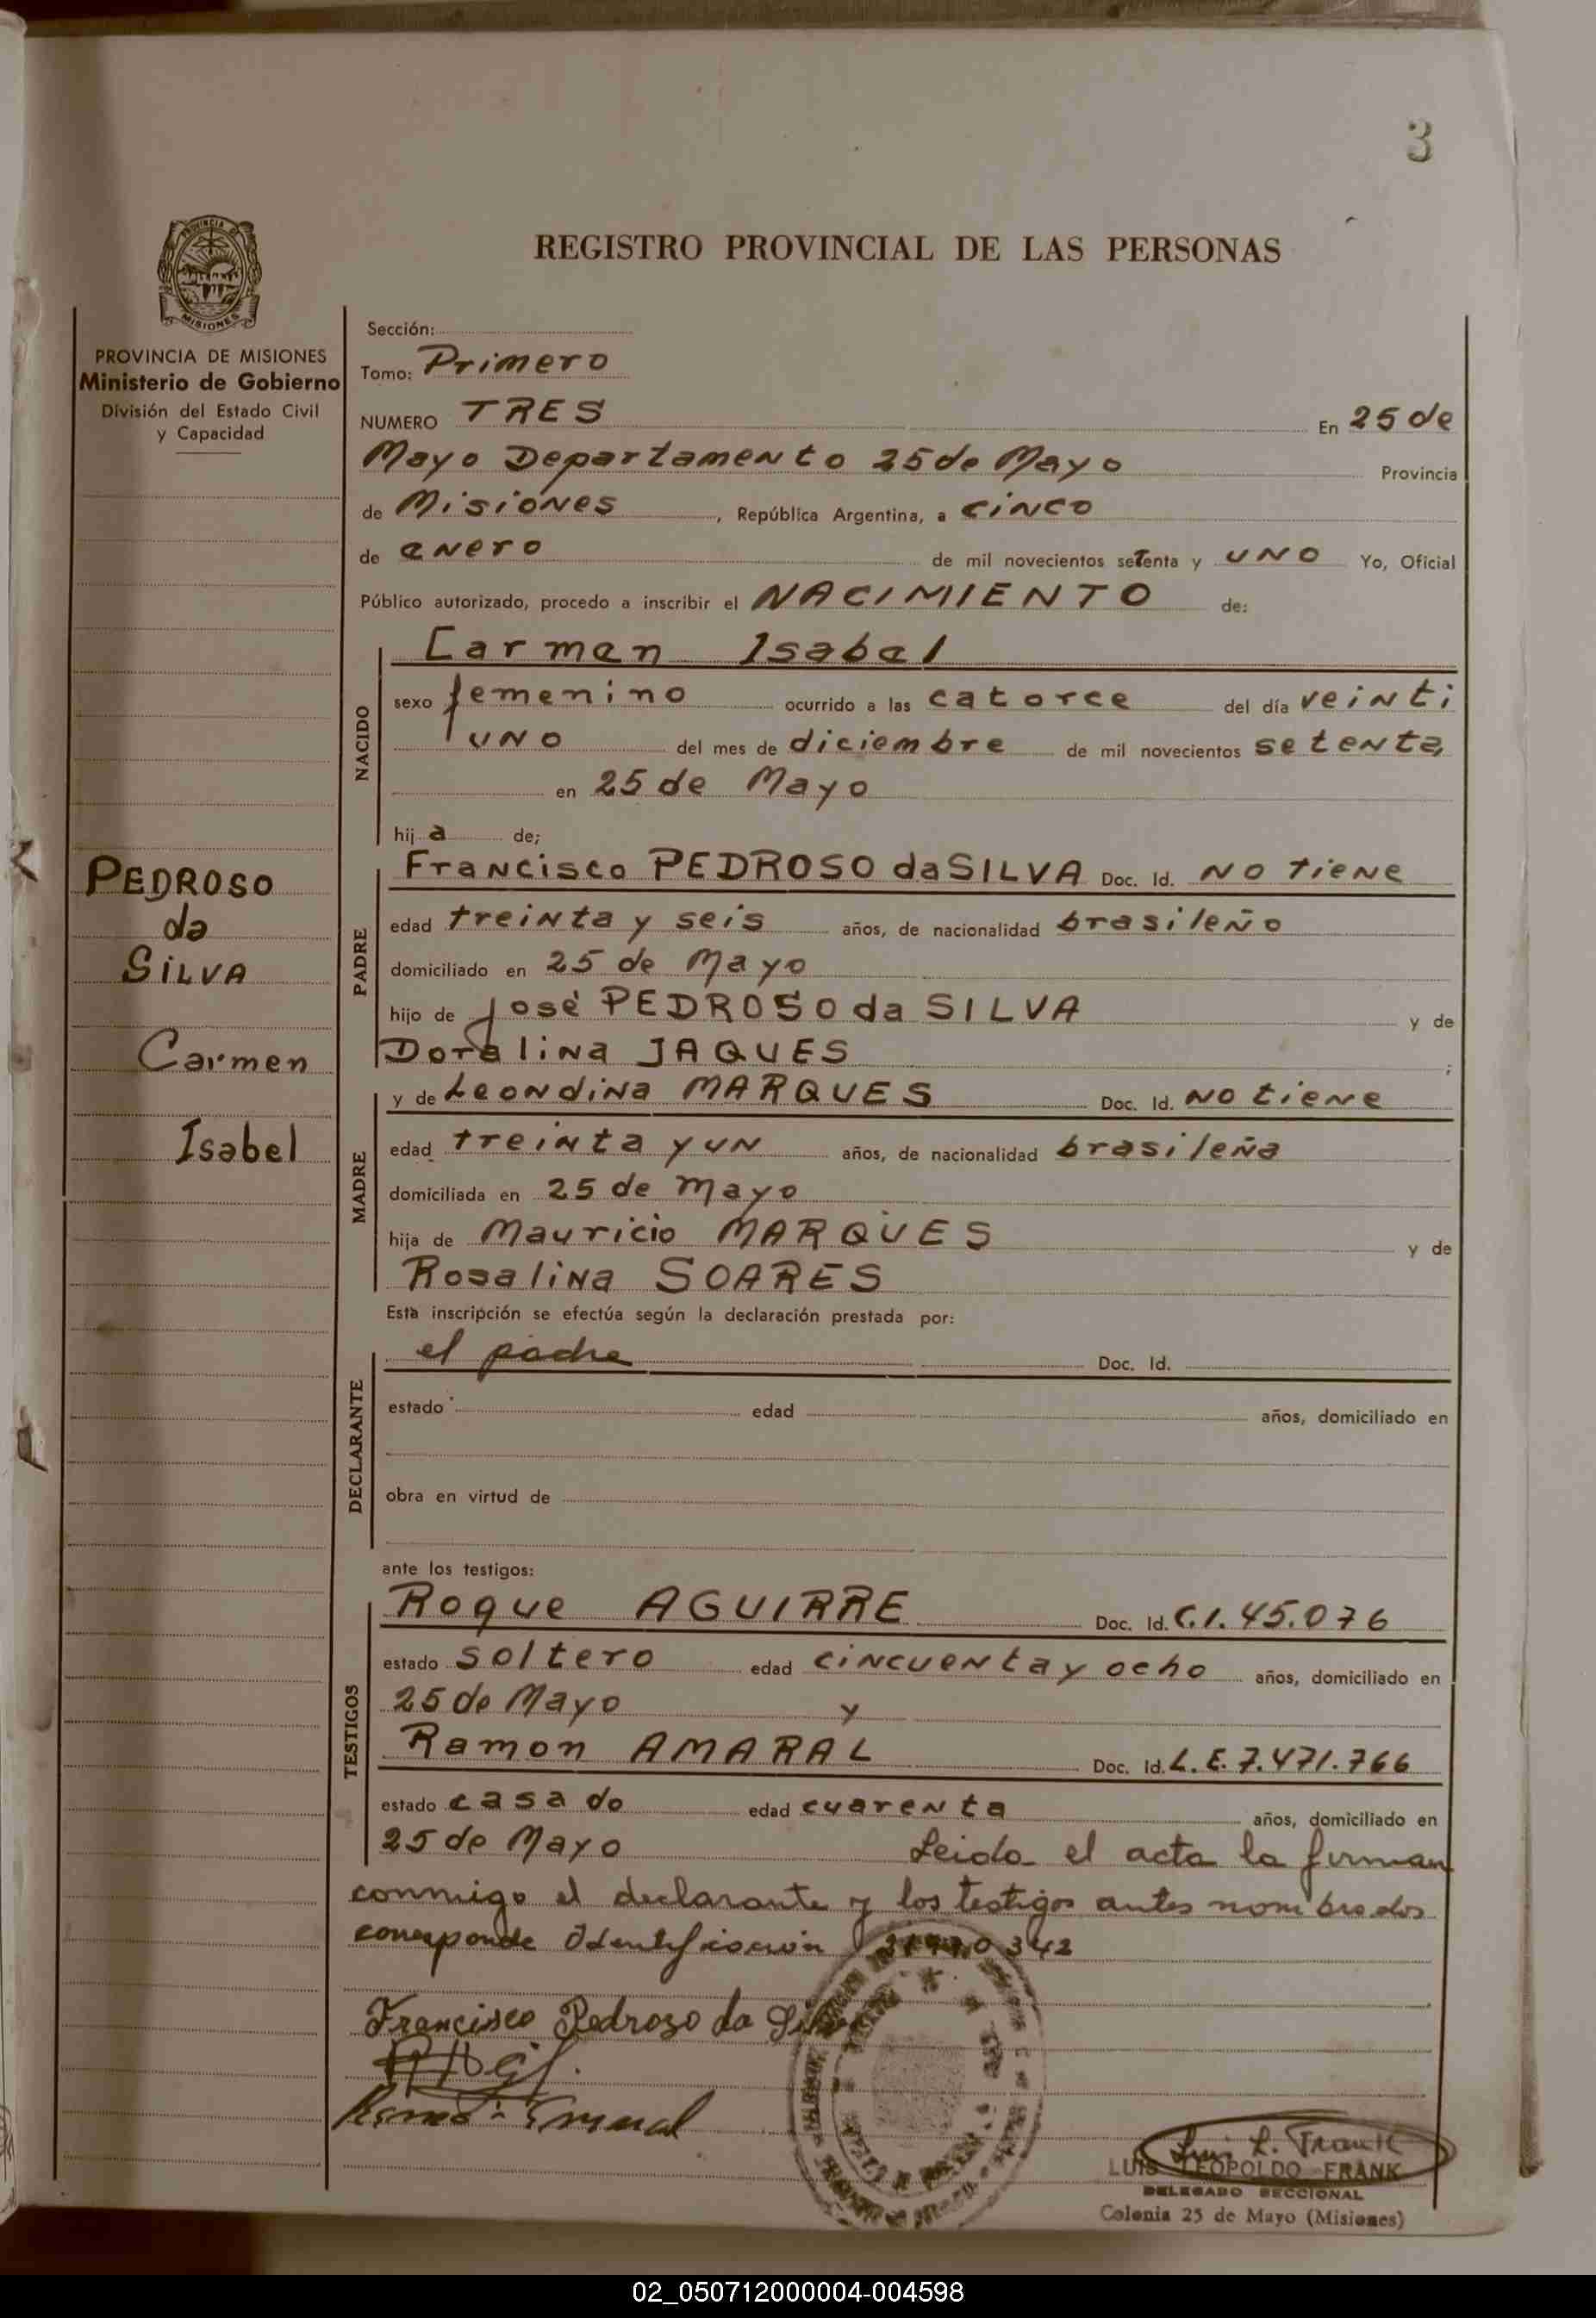 3
PROVINCIA DE
MISIONES
REGISTRO PROVINCIAL DE LAS PERSONAS
PROVINCIA DE MISIONES
Ministerio de Gobierno
División del Estado Civil
y Capacidad
PEDROSO
da
SILVA
Carmen
Isabel
Sección:
Tomo: Primero
NUMERO TRES En 25 de
Mayo Departamento 25 de Mayo Provincia
de Misiones, República Argentina, a cinco
de enero de mil novecientos seTenta y UNO Yo, Oficial
Público autorizado, procedo a inscribir el NACIMIENTO de:
NACIDO
Carmen Isabel
sexo femenino ocurrido a las catorce del día veinti
uno del mes de diciembre de mil novecientos setenta,
en 25 de Mayo
hij a de;
PADRE
Francisco PEDROSO da SILVA Doc. Id. No tiene
edad treinta y seis años, de nacionalidad brasileño
domiciliado en 25 de Mayo
hijo de José PEDROSO da SILVA y de
Doralina JAQUES ;
MADRE
y de Leondina MARQUES Doc. Id. No tiene
edad treinta y un años, de nacionalidad brasileña
domiciliada en 25 de Mayo
hija de Mauricio MARQUES y de
Rosalina SOARES
Esta inscripción se efectúa según la declaración prestada por:
DECLARANTE
el padre Doc. Id.
estado edad años, domiciliado en
obra en virtud de
ante los testigos:
TESTIGOS
Roque AGUIRRE Doc. Id. C.I. 45.076
estado soltero edad cincuenta y ocho años, domiciliado en
25 de Mayo y
Ramon AMARAL Doc. Id. L.E. 7.471.766
estado casado edad cuarenta años, domiciliado en
25 de Mayo Leida el acta la firman
conmigo el declarante y los testigos antes nombrados
corresponde Identificación 342
Francisco Pedroso da Silva
Luis L. Frank
LUIS LEOPOLDO FRANK
DELEGADO SECCIONAL
Colonia 25 de Mayo (Misiones)
02_050712000004-004598